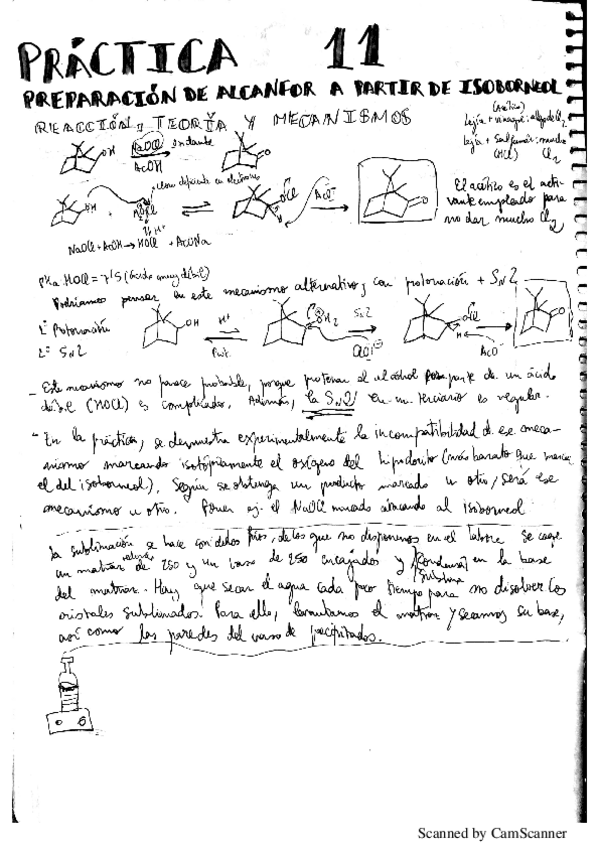 PRÁCTICA 11
PREPARACIÓN DE ALCANFOR A PARTIR DE ISOBORNEOL
REACCIÓN, TEORÍA Y MECANISMOS
(Acético)
Lejía + vinagre: algo de Cl2
Lejía + Salfumán: mucho
(HCl) Cl2
OH NaOCl
AcOH
O
OH
H+
OCl
AcO-
O
El acético es el acti-
vante empleado para
no dar mucho Cl2
NaOCl + AcOH → HOCl + AcONa
pKa HOCl = 7'5 (ácido muy débil)
Podríamos pensar en este mecanismo alternativo, con protonación + SN2
1º Protonación
2º SN2
OH H+
OH2
SN2
OCl
AcO-
O
- Este mecanismo no parece probable, porque protonar el alcohol por parte de un ácido
débil (HOCl) es complicado. Además, la SN2 en un terciario es regular.
- En la práctica, se demuestra experimentalmente la incompatibilidad de ese meca-
nismo marcando isotópicamente el oxígeno del hipoclorito (más barato que marcar
el del isoborneol). Según se obtenga un producto marcado u otro, será ese
mecanismo u otro. Poner ej. el NaOCl marcado atacando al isoborneol
La sublimación se hace con dedos fríos, de los que no disponemos en el labore. Se coge
un matraz de 250 y un vaso de 250 encajados y en la base
del matraz. Hay que secar el agua cada poco tiempo para no disolver los
cristales sublimados. Para ello, levantamos el matraz y secamos su base,
así como las paredes del vaso de precipitados.
Scanned by CamScanner